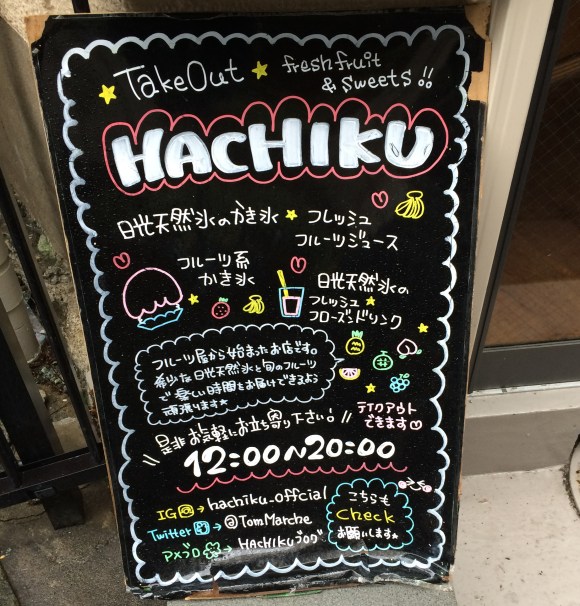 TakeOut
fresh fruit
& sweets!!
HACHIKU
日光天然氷のかき氷
フレッシュ
フルーツジュース
フルーツ系
かき氷
日光天然氷の
フレッシュ
フローズンドリンク
フルーツ屋から始まったお店です。
希少な日光天然氷と旬のフルーツ
で楽しい時間をお届けできるよう
頑張ります
テイクアウト
できます♡
是非お気軽にお立ち寄り下さい!
12:00~20:00
IG→hachiku_offcial
Twitter→@TomMarche
アメブロ→HACHIKUブログ
こちらも
Check
お願いします